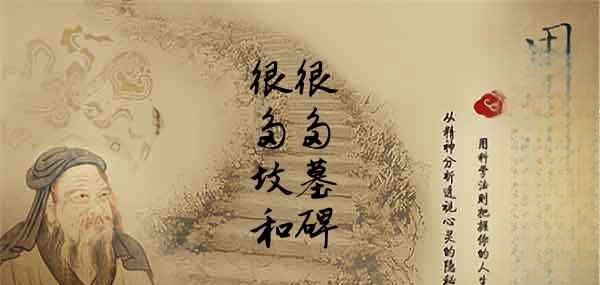 很多坟和
很多墓碑
从精神分析透视心灵的隐秘
用科学法则把握你的人生